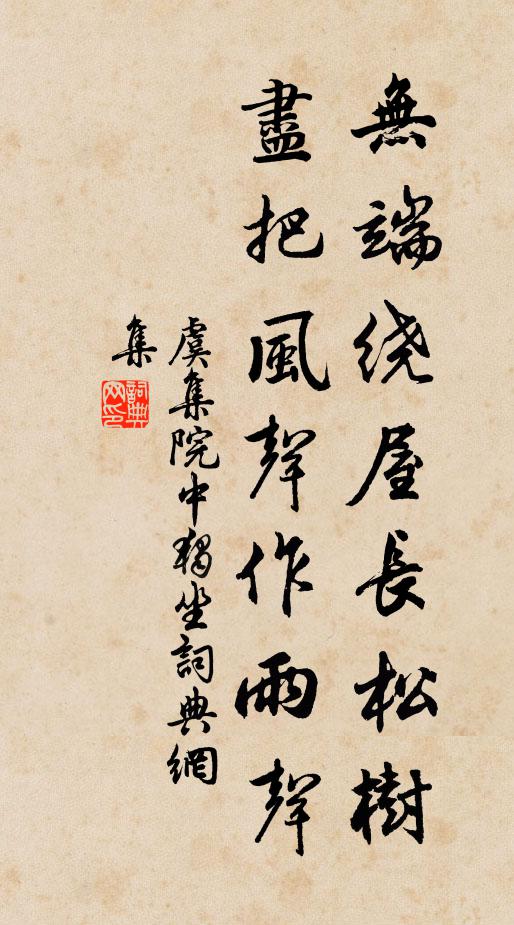 無端绕屋長松樹
盡把風聲作雨聲
虞集院中獨坐詞典網
集
詞典网印